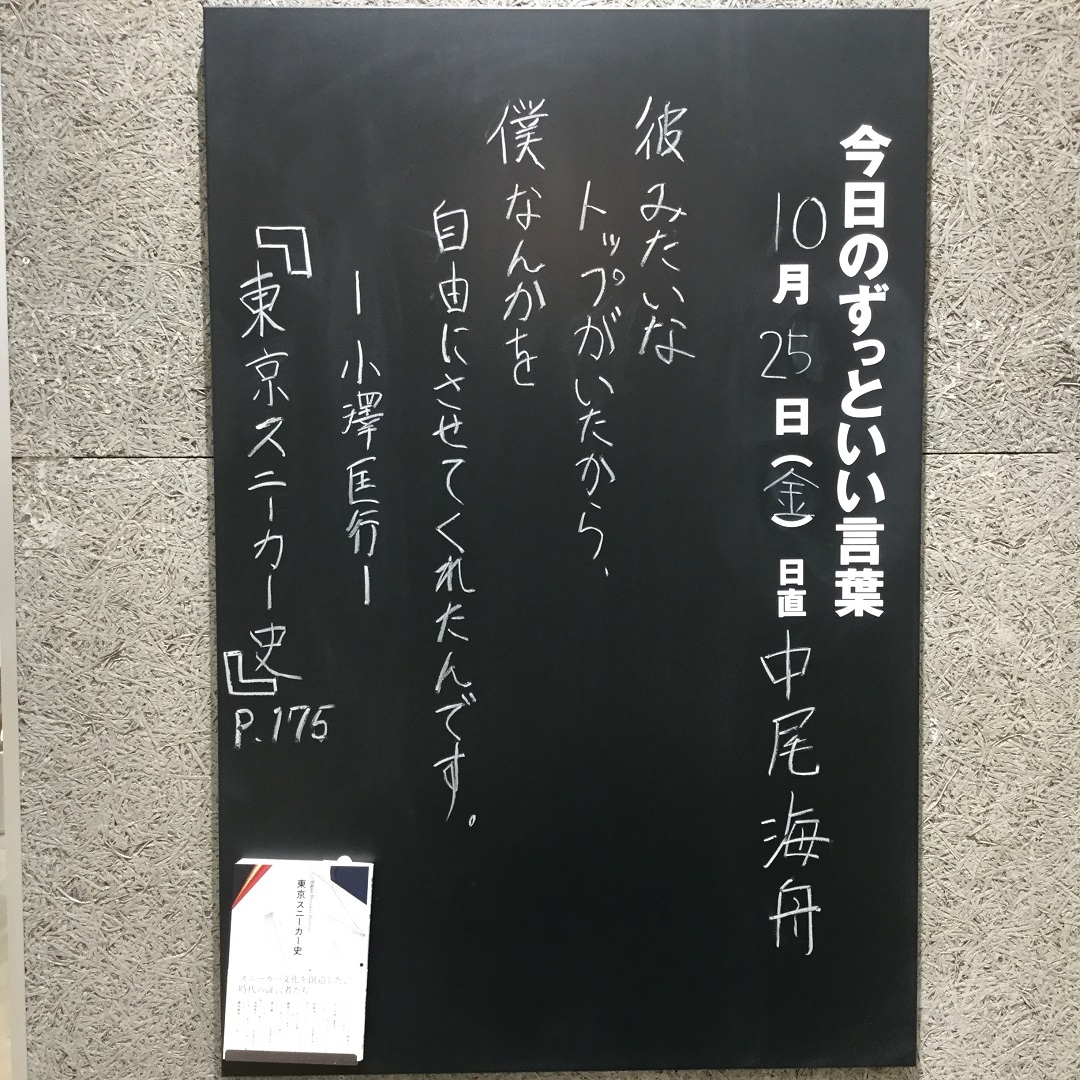 今日のずっといい言葉
10月25日(金) 日直 中尾海舟
彼みたいな
トップがいたから、
僕なんかを
自由にさせてくれたんです。
ー小澤匡行ー
『東京スニーカー史』
P.175
東京スニーカー史
スニーカー文化を創造した、
時代の証言者たち